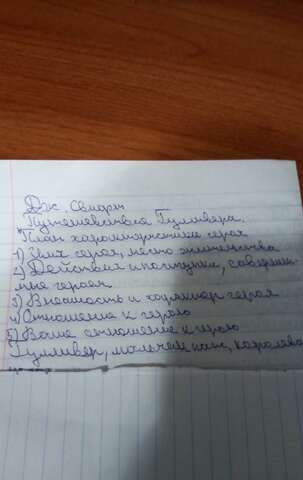 Дж. Свифт
Путешествия Гулливера.
План характеристики героя
1) Имя героя, место жительства
2) Действия и поступки, совершен-
ные героем
3) Внешность и характер героя
4) Отношение к герою
5) Ваше отношение к герою
Гулливер, мальчик паж, королева